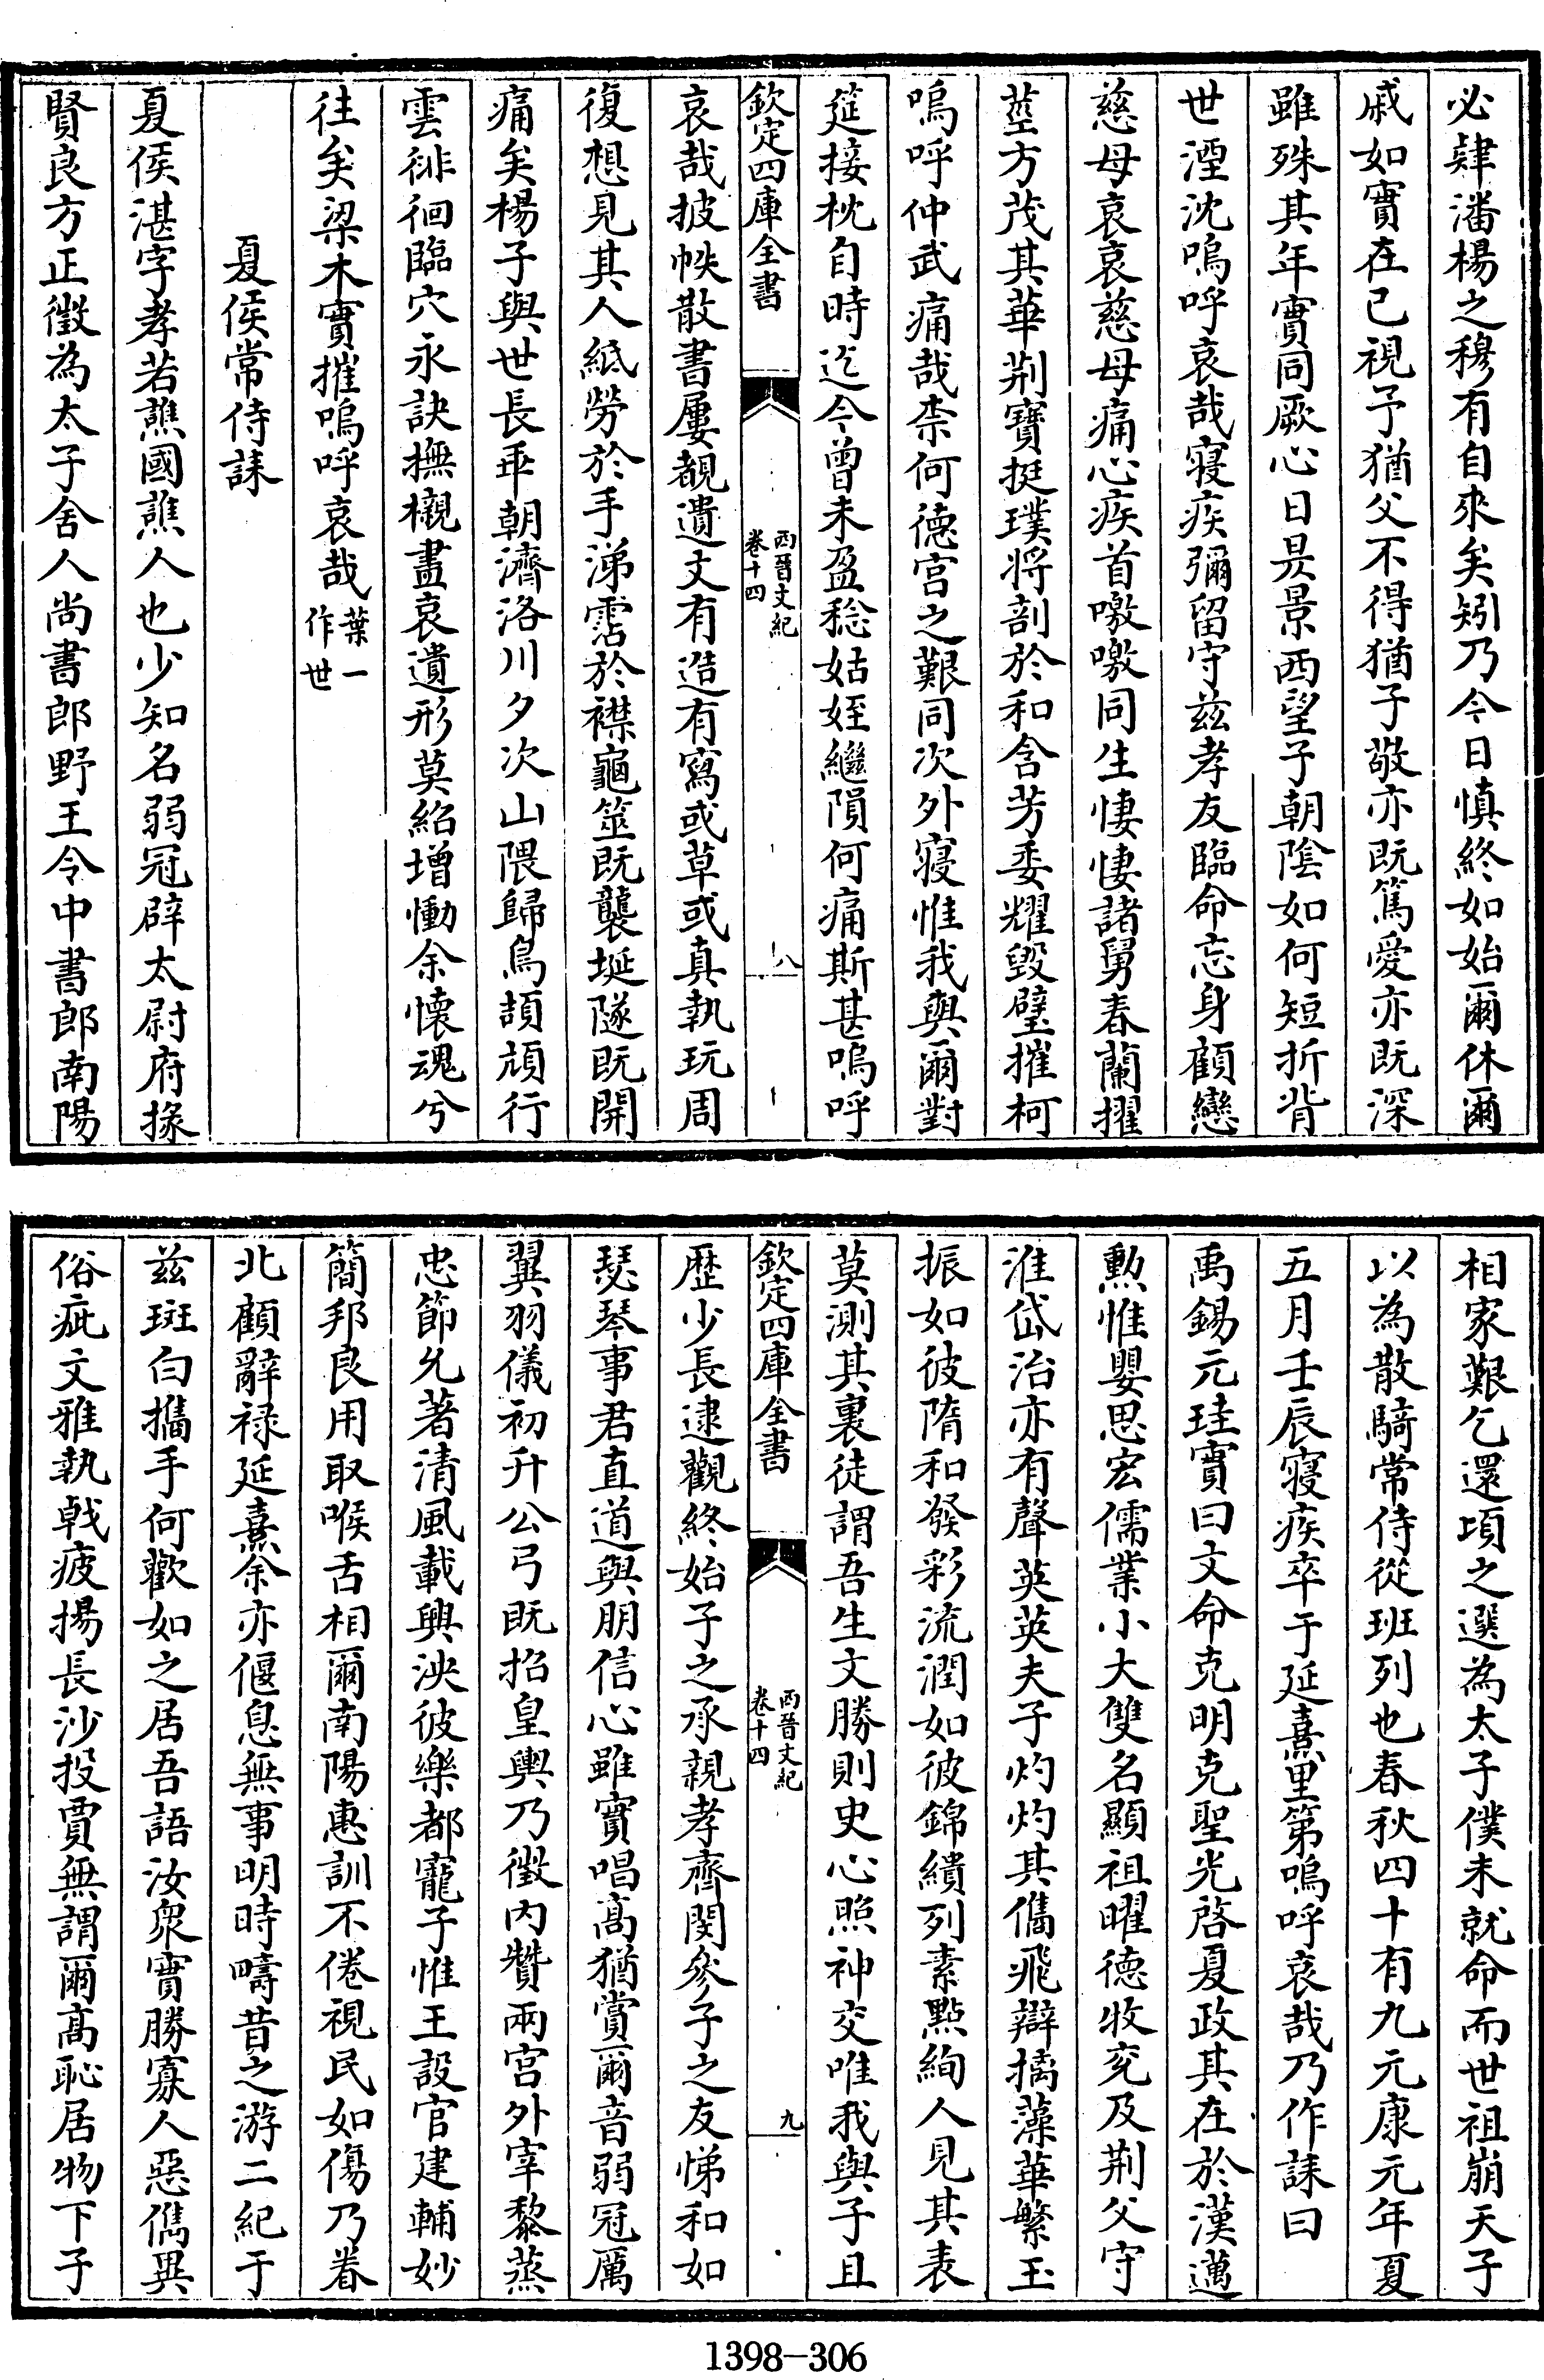 必肆潘楊之穆有自來矣矧乃今日慎終如始爾休爾
戚如實在已視予猶父不得猶子敬亦既篤愛亦既深
雖殊其年實同厥心日昃景西望子朝陰如何短折背
世湮沈嗚呼哀哉寢疾彌留守兹孝友臨命忘身顧戀
慈母哀哀慈母痛心疾首噭噭同生悽悽諸舅春蘭擢
莖方茂其華荆寶挺璞將剖於和含芳委耀毀璧摧柯
嗚呼仲武痛哉柰何德宫之艱同次外寢惟我與爾對
筵接枕自時迄今曾未盈稔姑姪繼隕何痛斯甚嗚呼
欽定四庫全書
西晉文紀
卷十四
八
哀哉披帙散書屢覩遺文有造有寫或草或真執玩周
復想見其人紙勞於手涕霑於襟龜筮既襲埏隧既開
痛矣楊子與世長乖朝濟洛川夕次山隈歸鳥頡頏行
雲徘徊臨穴永訣撫櫬盡哀遺形莫紹增慟余懷魂兮
往矣梁木實摧嗚呼哀哉葉一作世
夏侯常侍誄
夏侯湛字孝若譙國譙人也少知名弱冠辟太尉府掾
賢良方正徵為太子舍人尚書郎野王令中書郎南陽
相家艱乞還項之選為太子僕未就命而世祖崩天子
以為散騎常侍從班列也春秋四十有九元康元年夏
五月壬辰寢疾卒于延熹里第嗚呼哀哉乃作誄曰
禹錫元珪實曰文命克明克聖光啓夏政其在於漢邁
勲惟嬰思宏儒業小大雙名顯祖曜德牧兖及荆父守
淮岱治亦有聲英英夫子灼灼其儁飛辯摛藻華繁玉
振如彼隋和發彩流潤如彼錦繢列素點絢人見其表
莫測其裏徒謂吾生文勝則史心照神交唯我與子且
欽定四庫全書
西晉文紀
卷十四
九
歴少長逮觀終始子之承親孝齊閔參子之友悌和如
瑟琴事君直道與朋信心雖實唱髙猶賞爾音弱冠厲
翼羽儀初升公弓既招皇輿乃徵内贊兩宫外宰黎蒸
忠節允著清風載興泱彼樂都寵子惟王設官建輔妙
簡邦良用取喉舌相爾南陽惠訓不倦視民如傷乃眷
北顧辭禄延熹余亦偃息無事明時疇昔之游二紀于
兹斑白攜手何歡如之居吾語汝衆實勝寡人惡儁異
俗疵文雅執戟疲揚長沙投賈無謂爾髙恥居物下子
1398-306